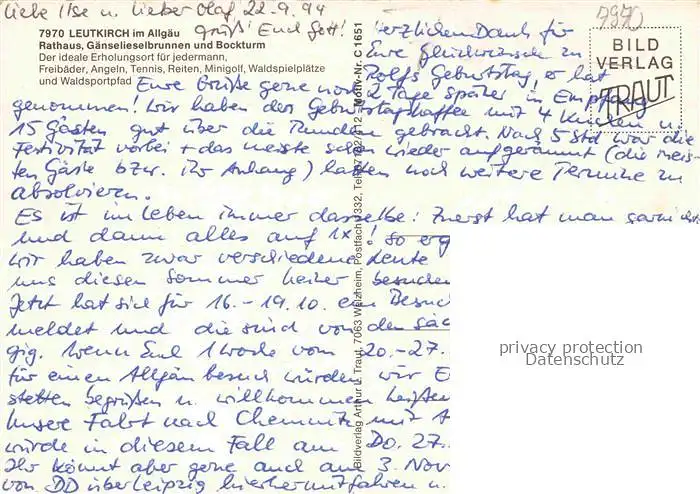 Liebe Ilse u. lieber Olaf 22-9.94
grüß Euch Gott!
7970
7970 LEUTKIRCH im Allgäu
Rathaus, Gänselieselbrunnen und Bockturm
Der ideale Erholungsort für jedermann,
Freibäder, Angeln, Tennis, Reiten, Minigolf, Waldspielplätze
und Waldsportpfad
BILD
VERLAG
TRAUT
Herzlichen Dank für
Eure Glückwünsche zu
Rolfs Geburtstag, er hat
Eure Grüße gerne noch 2 Tage später in Empfang
genommen! Wir haben den Geburtstagskaffee mit 4 Kuchen u.
15 Gästen gut über die Runden gebracht. Nach 5 Std war die
Festivität vorbei + das meiste schon wieder aufgeräumt (die meis-
ten Gäste bzw. ihr Anhang) hatten noch weitere Termine zu
absolvieren.
Es ist im Leben immer dasselbe: Zuerst hat man garnichts
und dann alles auf 1x! So erg
wir haben zwar verschiedene Leute
uns diesen Sommer hier besuchen
Jetzt hat sich für 16.-19.10. ein Besuc
meldet und die sind von den
gig. Wenn Euch 1 Woche vom 20.-27.
für einen Allgäu besuch würden wir E
stetten begrüßen u. willkommen heißen
Unsere Fahrt nach Chemnitz mit A
würde in diesem Fall am Do. 27.
Ihr könnt aber gerne auch am 3. Nov
von DD über Leipzig hierher mitfahren u.
Bildverlag Arthur F. Traut, 7063 Welzheim, Postfach 1332, Motiv-Nr. C 1651
privacy protection
Datenschutz